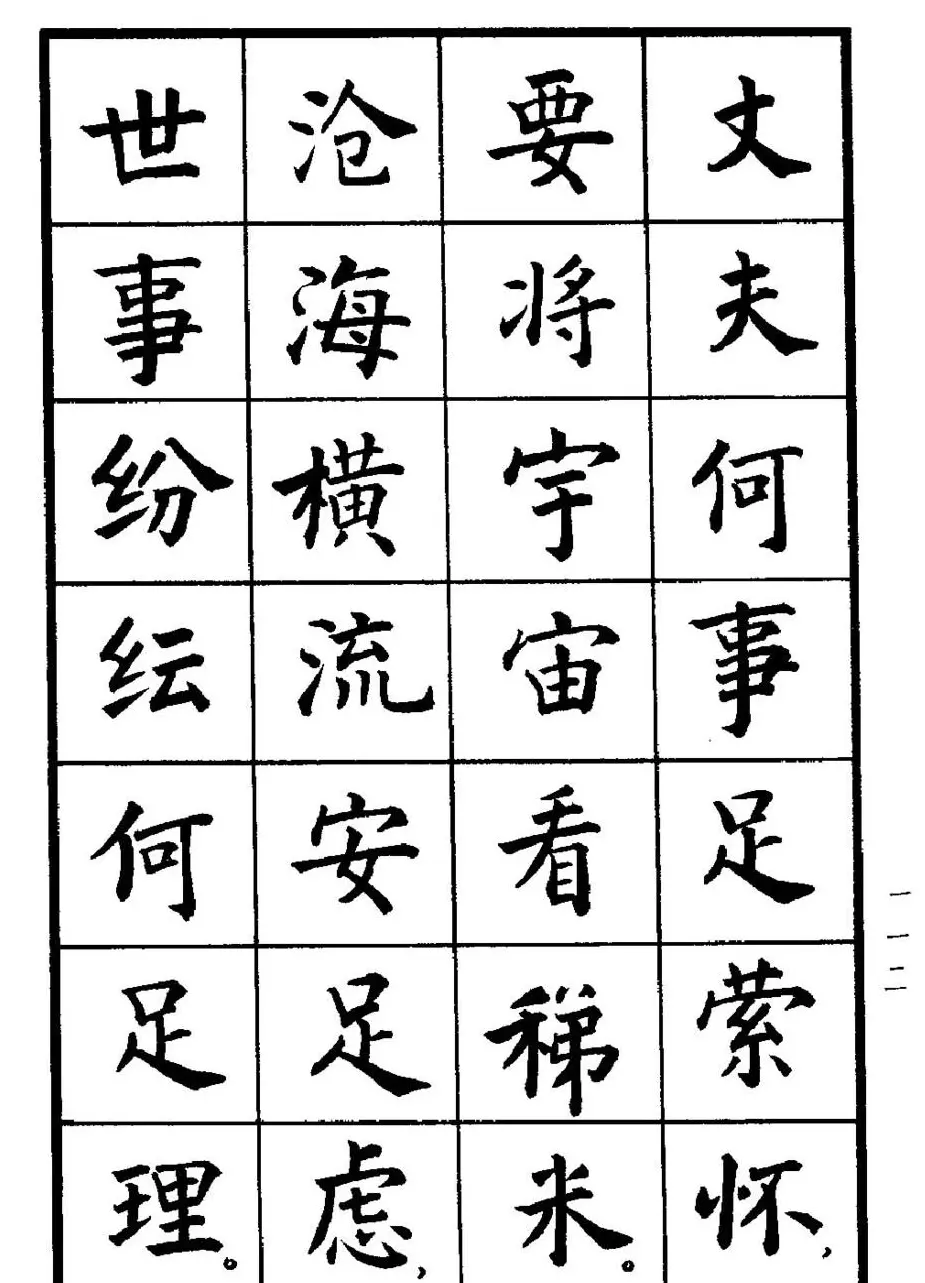 丈夫何事足萦怀，
要将宇宙看稊米。
沧海横流安足虑，
世事纷纭何足理。
一一二